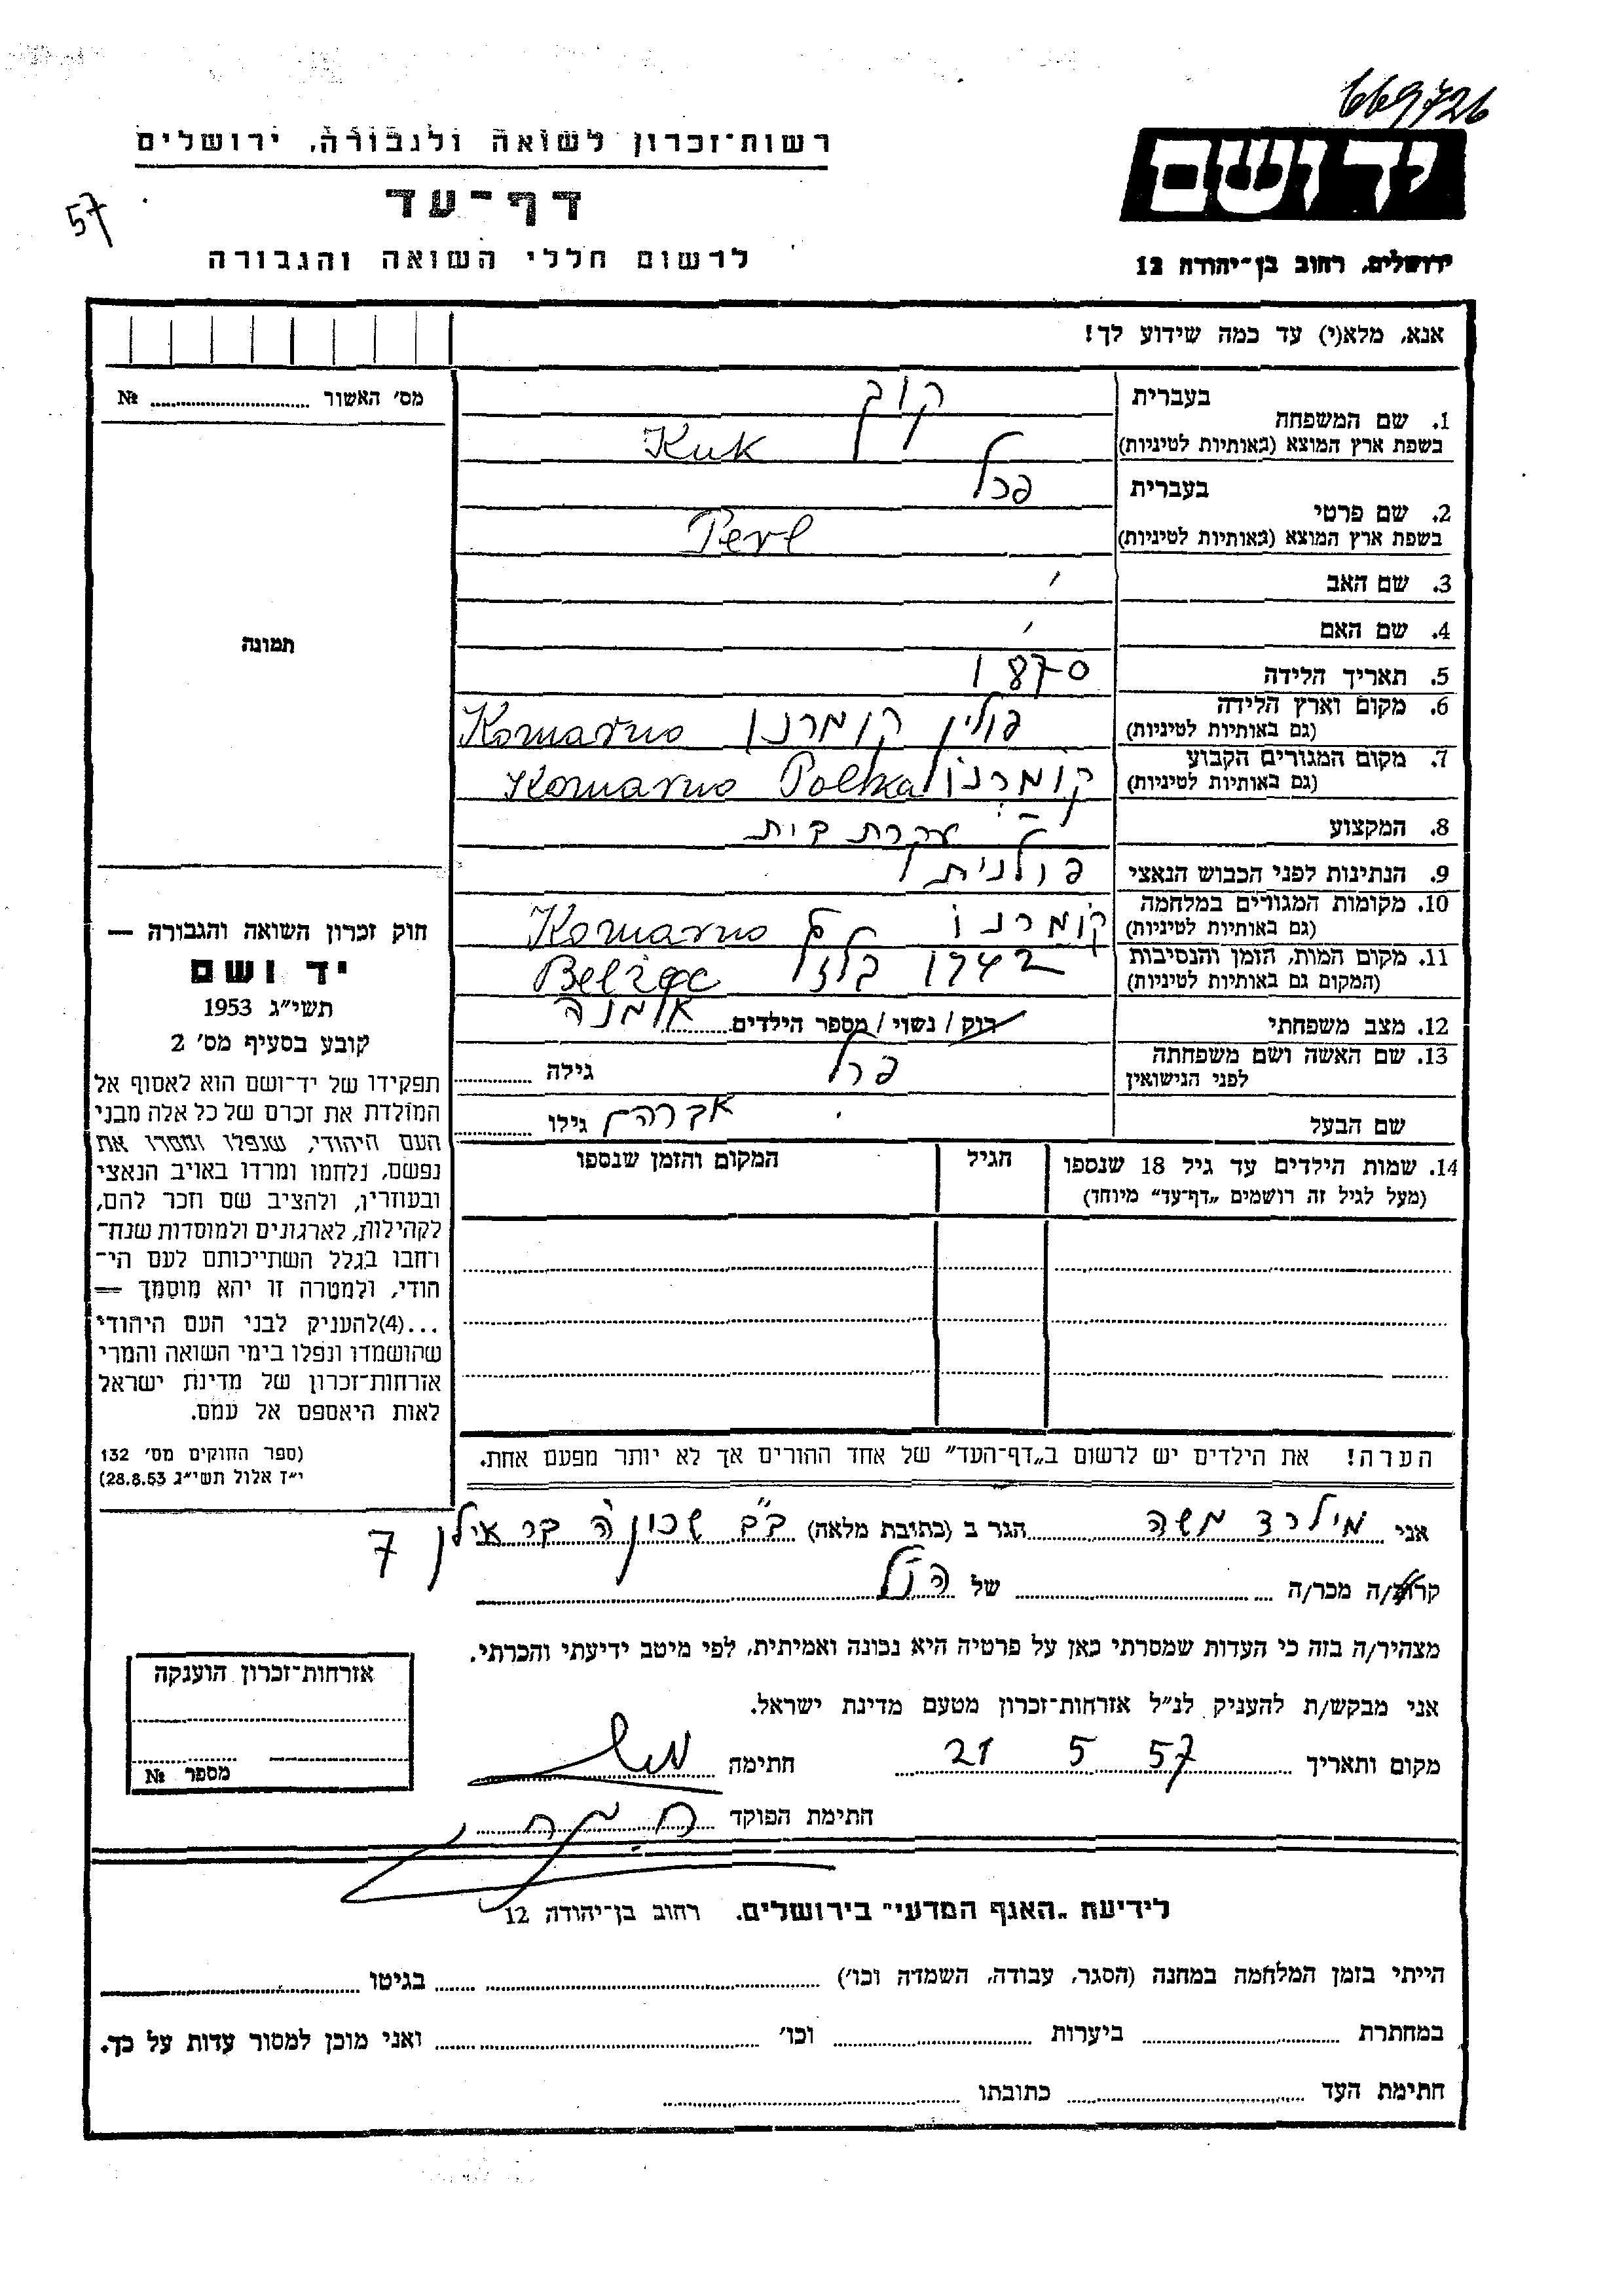 669726
רשות־זכרון לשואה ולגבורה, ירושלים
ידושם
דף־עד
57
לרשום חללי השואה והגבורה
ירושלים, רחוב בן־יהודה 12
אנא, מלא(י) עד כמה שידוע לך!
מס׳ האשור № 
בעברית קוק
1. שם המשפחה
בשפת ארץ המוצא (באותיות לטיניות) Kuk
בעברית פרל
2. שם פרטי
בשפת ארץ המוצא (באותיות לטיניות) Perl
3. שם האב
4. שם האם
תמונה
5. תאריך הלידה 1870
6. מקום וארץ הלידה פולין קומרנו Komarno
(גם באותיות לטיניות)
7. מקום המגורים הקבוע קומרנו Komarno Polska
(גם באותיות לטיניות)
8. המקצוע עקרת בית
9. הנתינות לפני הכבוש הנאצי פולנית
10. מקומות המגורים במלחמה קומרנו Komarno
(גם באותיות לטיניות)
11. מקום המות, הזמן והנסיבות 1942 בלזץ Belżec
(המקום גם באותיות לטיניות)
12. מצב משפחתי רווק / נשוי / מספר הילדים אלמנה
13. שם האשה ושם משפחתה פרל גילה
לפני הנישואין
שם הבעל אברהם גילו
14. שמות הילדים עד גיל 18 שנספו הגיל המקום והזמן שנספו
(מעל לגיל זה רושמים „דף־עד” מיוחד)
חוק זכרון השואה והגבורה —
יד ושם
תשי״ג 1953
קובע בסעיף מס׳ 2
תפקידו של יד־ושם הוא לאסוף אל
המולדת את זכרם של כל אלה מבני
העם היהודי, שנפלו ומסרו את
נפשם, נלחמו ומרדו באויב הנאצי
ובעוזריו, ולהציב שם וזכר להם,
לקהילות, לארגונים ולמוסדות שנח־
רחבו בגלל השתייכותם לעם הי־
הודי, ולמטרה זו יהא מוסמך —
...(4)להעניק לבני העם היהודי
שהושמדו ונפלו בימי השואה והמרי
אזרחות־זכרון של מדינת ישראל
לאות היאספם אל עמם.
(ספר החוקים מס׳ 132
י״ז אלול תשי״ג 28.8.53)
הערה! את הילדים יש לרשום ב„דף־העד” של אחד ההורים אך לא יותר מפעם אחת.
אני מילרד משה הגר ב (כתובת מלאה) ב״ב שכונה בר אילן 7
קרוב/ה מכר/ה של הנ״ל
מצהיר/ה בזה כי העדות שמסרתי כאן על פרטיה היא נכונה ואמיתית, לפי מיטב ידיעתי והכרתי.
אני מבקש/ת להעניק לנ״ל אזרחות־זכרון מטעם מדינת ישראל.
מקום ותאריך 21 5 57 חתימה
חתימת הפוקד
אזרחות־זכרון הוענקה
מספר №
לידיעת „האגף המדעי” בירושלים, רחוב בן־יהודה 12
הייתי בזמן המלחמה במחנה (הסגר, עבודה, השמדה וכו׳) בגיטו
במחתרת ביערות וכו׳ ואני מוכן למסור עדות על כך.
חתימת העד כתובתו